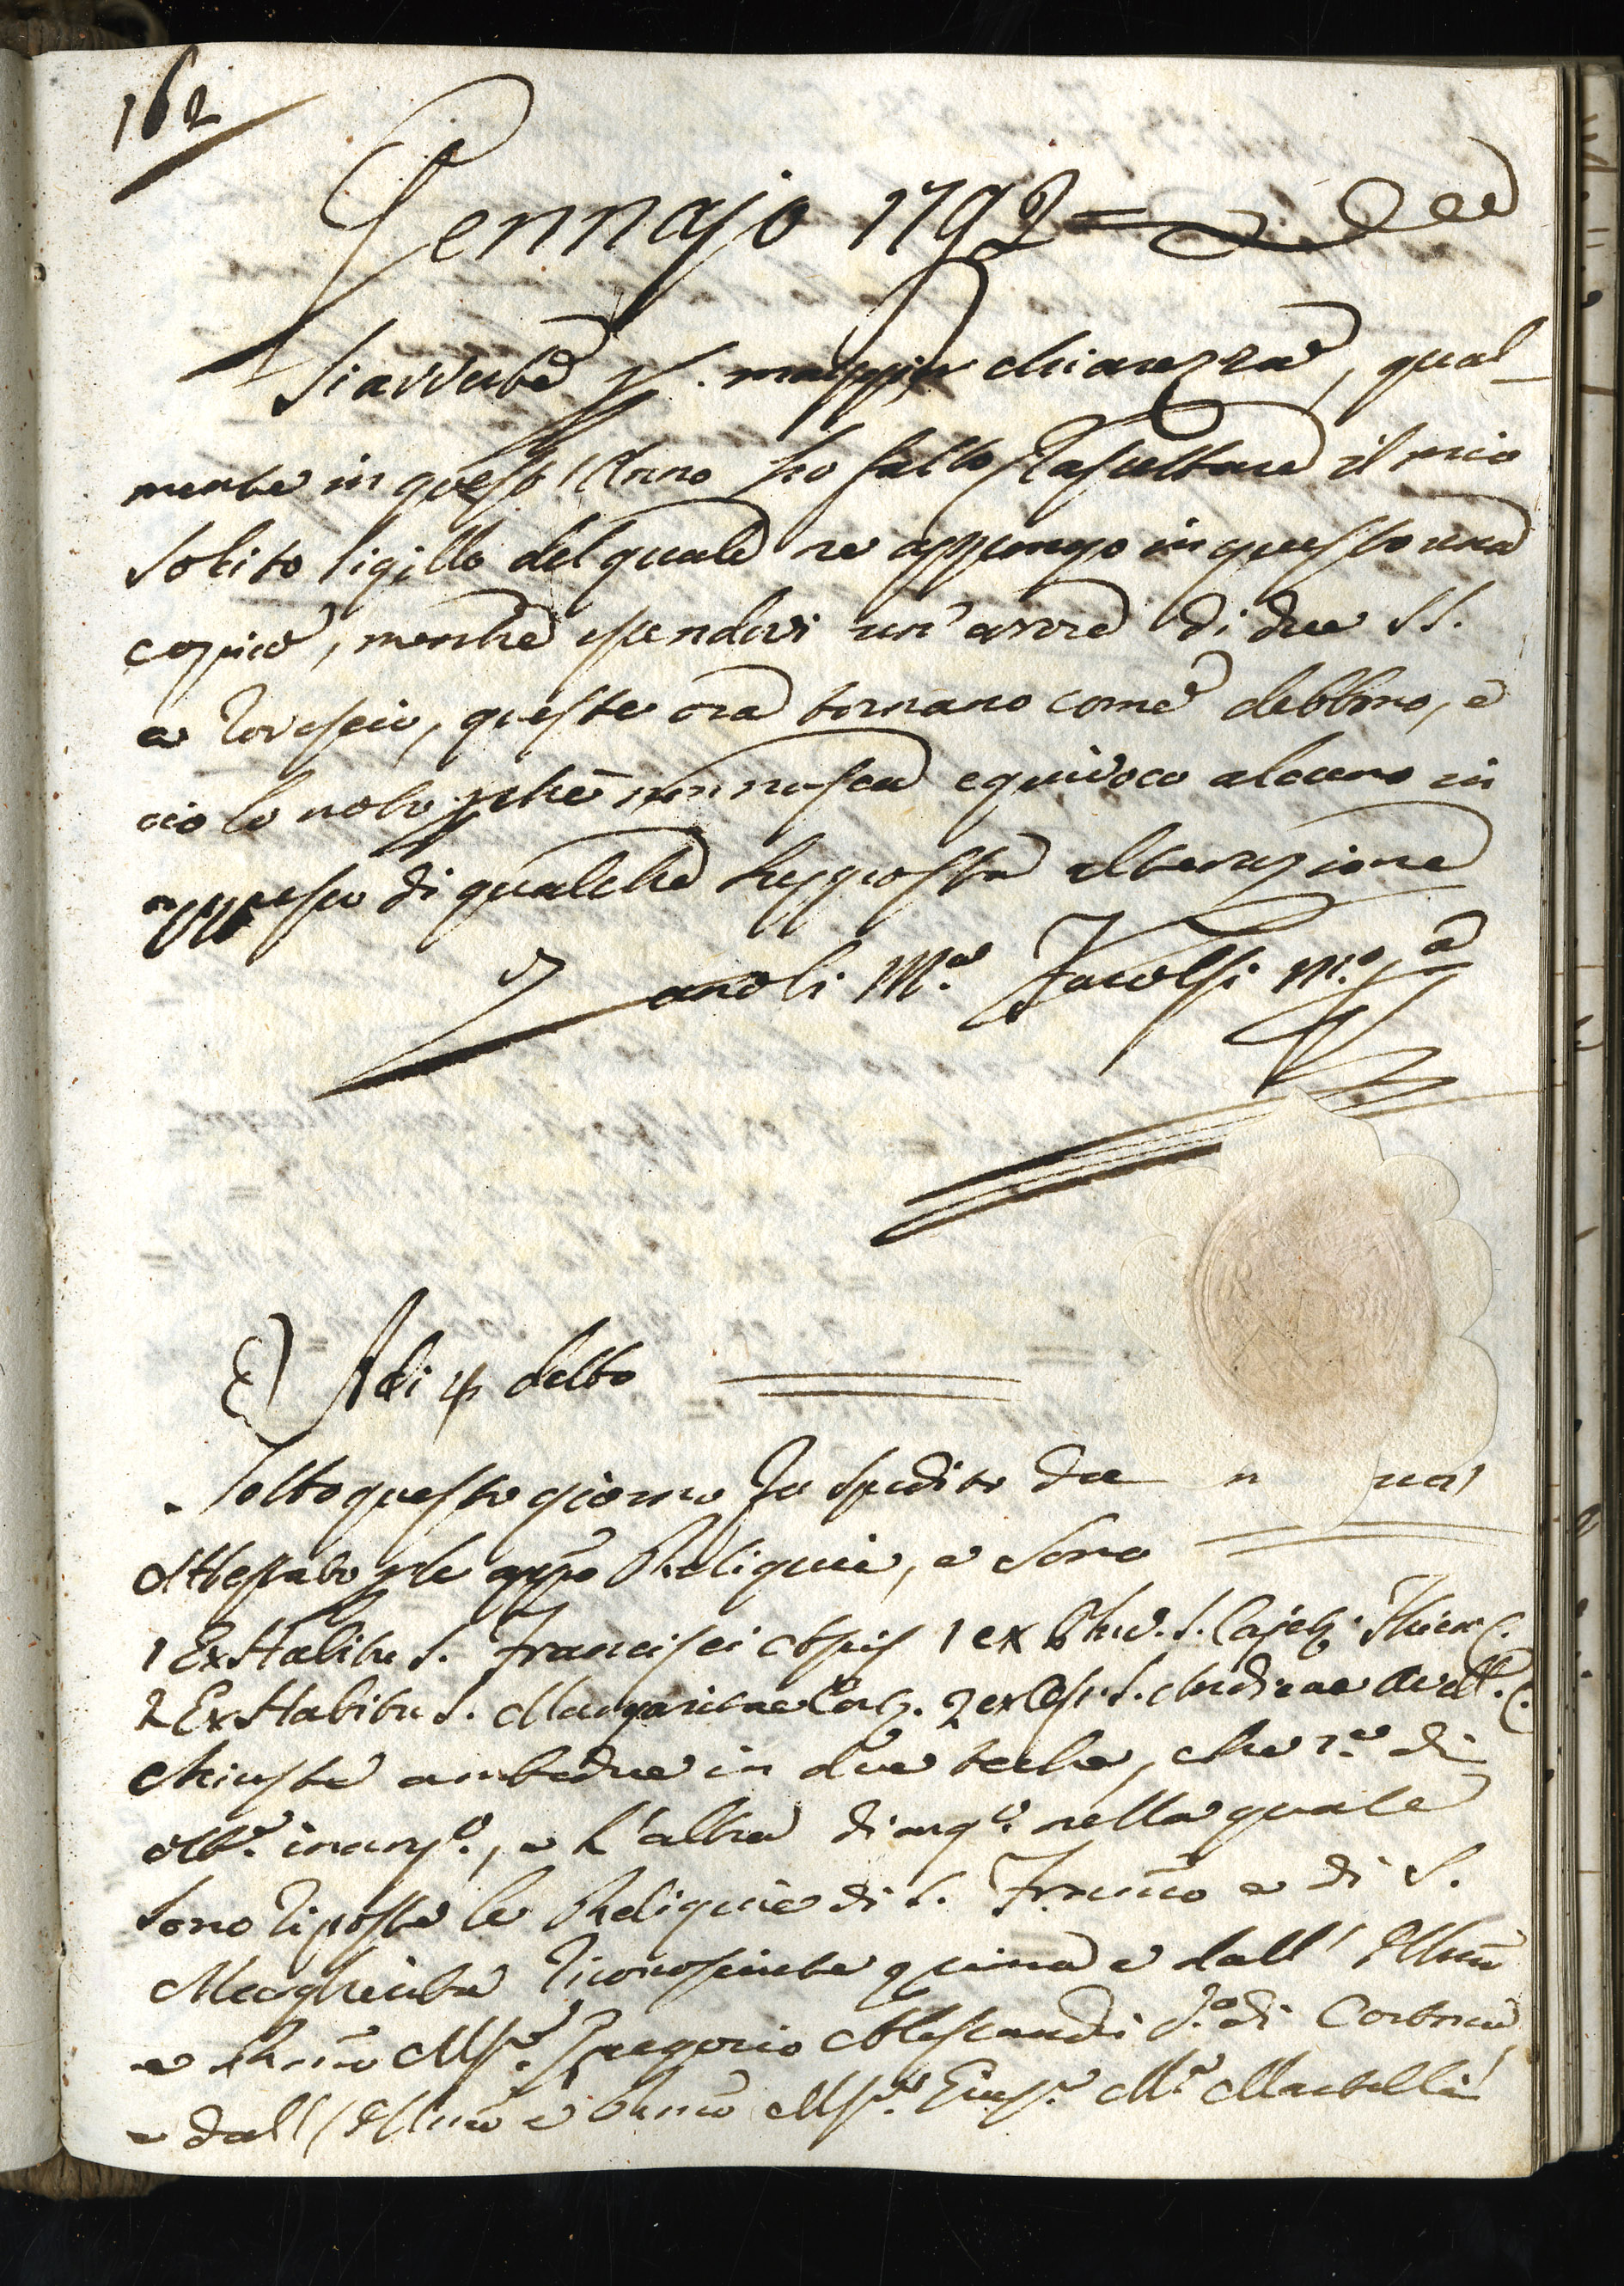 162
Gennajo 1792 =
Si avverte p. maggior chiarezza, qual-
mente in quest'Anno ho fatto Rasettare il mio
solito sigillo del quale ne appongo in questo una
copia, mentre essendovi un' errore di due SS.
a rovescio, queste ora tornano come debbono, e
ciò lo noto pchè non nasca equivoco alcuno in
appresso di qualche supposta alterazione
Jacopi
E) Adi 4 detto
Sotto questo giorno Jo spedito due
Attestato p le app̃o Reliquie, e sono
1 Ex Habitu S. Francisci Assis 1 ex S. Cajet. Thien. C.
2 Ex Habitu S. Margaritae Cort. 2 ex S. Andreae Avell. C.
chiuste ambedue in due teche, che 1.a di
ott.e inarg.o, e l'altra di arg.o nella quale
sono riposte le Reliquie di S. Franc̃o e di S.
Margherita riconosciute prima e dall' Illm̃o
e Rm̃o Msr. Gregorio Alessandri V.o di Cortona
e dall' Illm̃o e Rm̃o Msr. Gius.e M.a Martelli